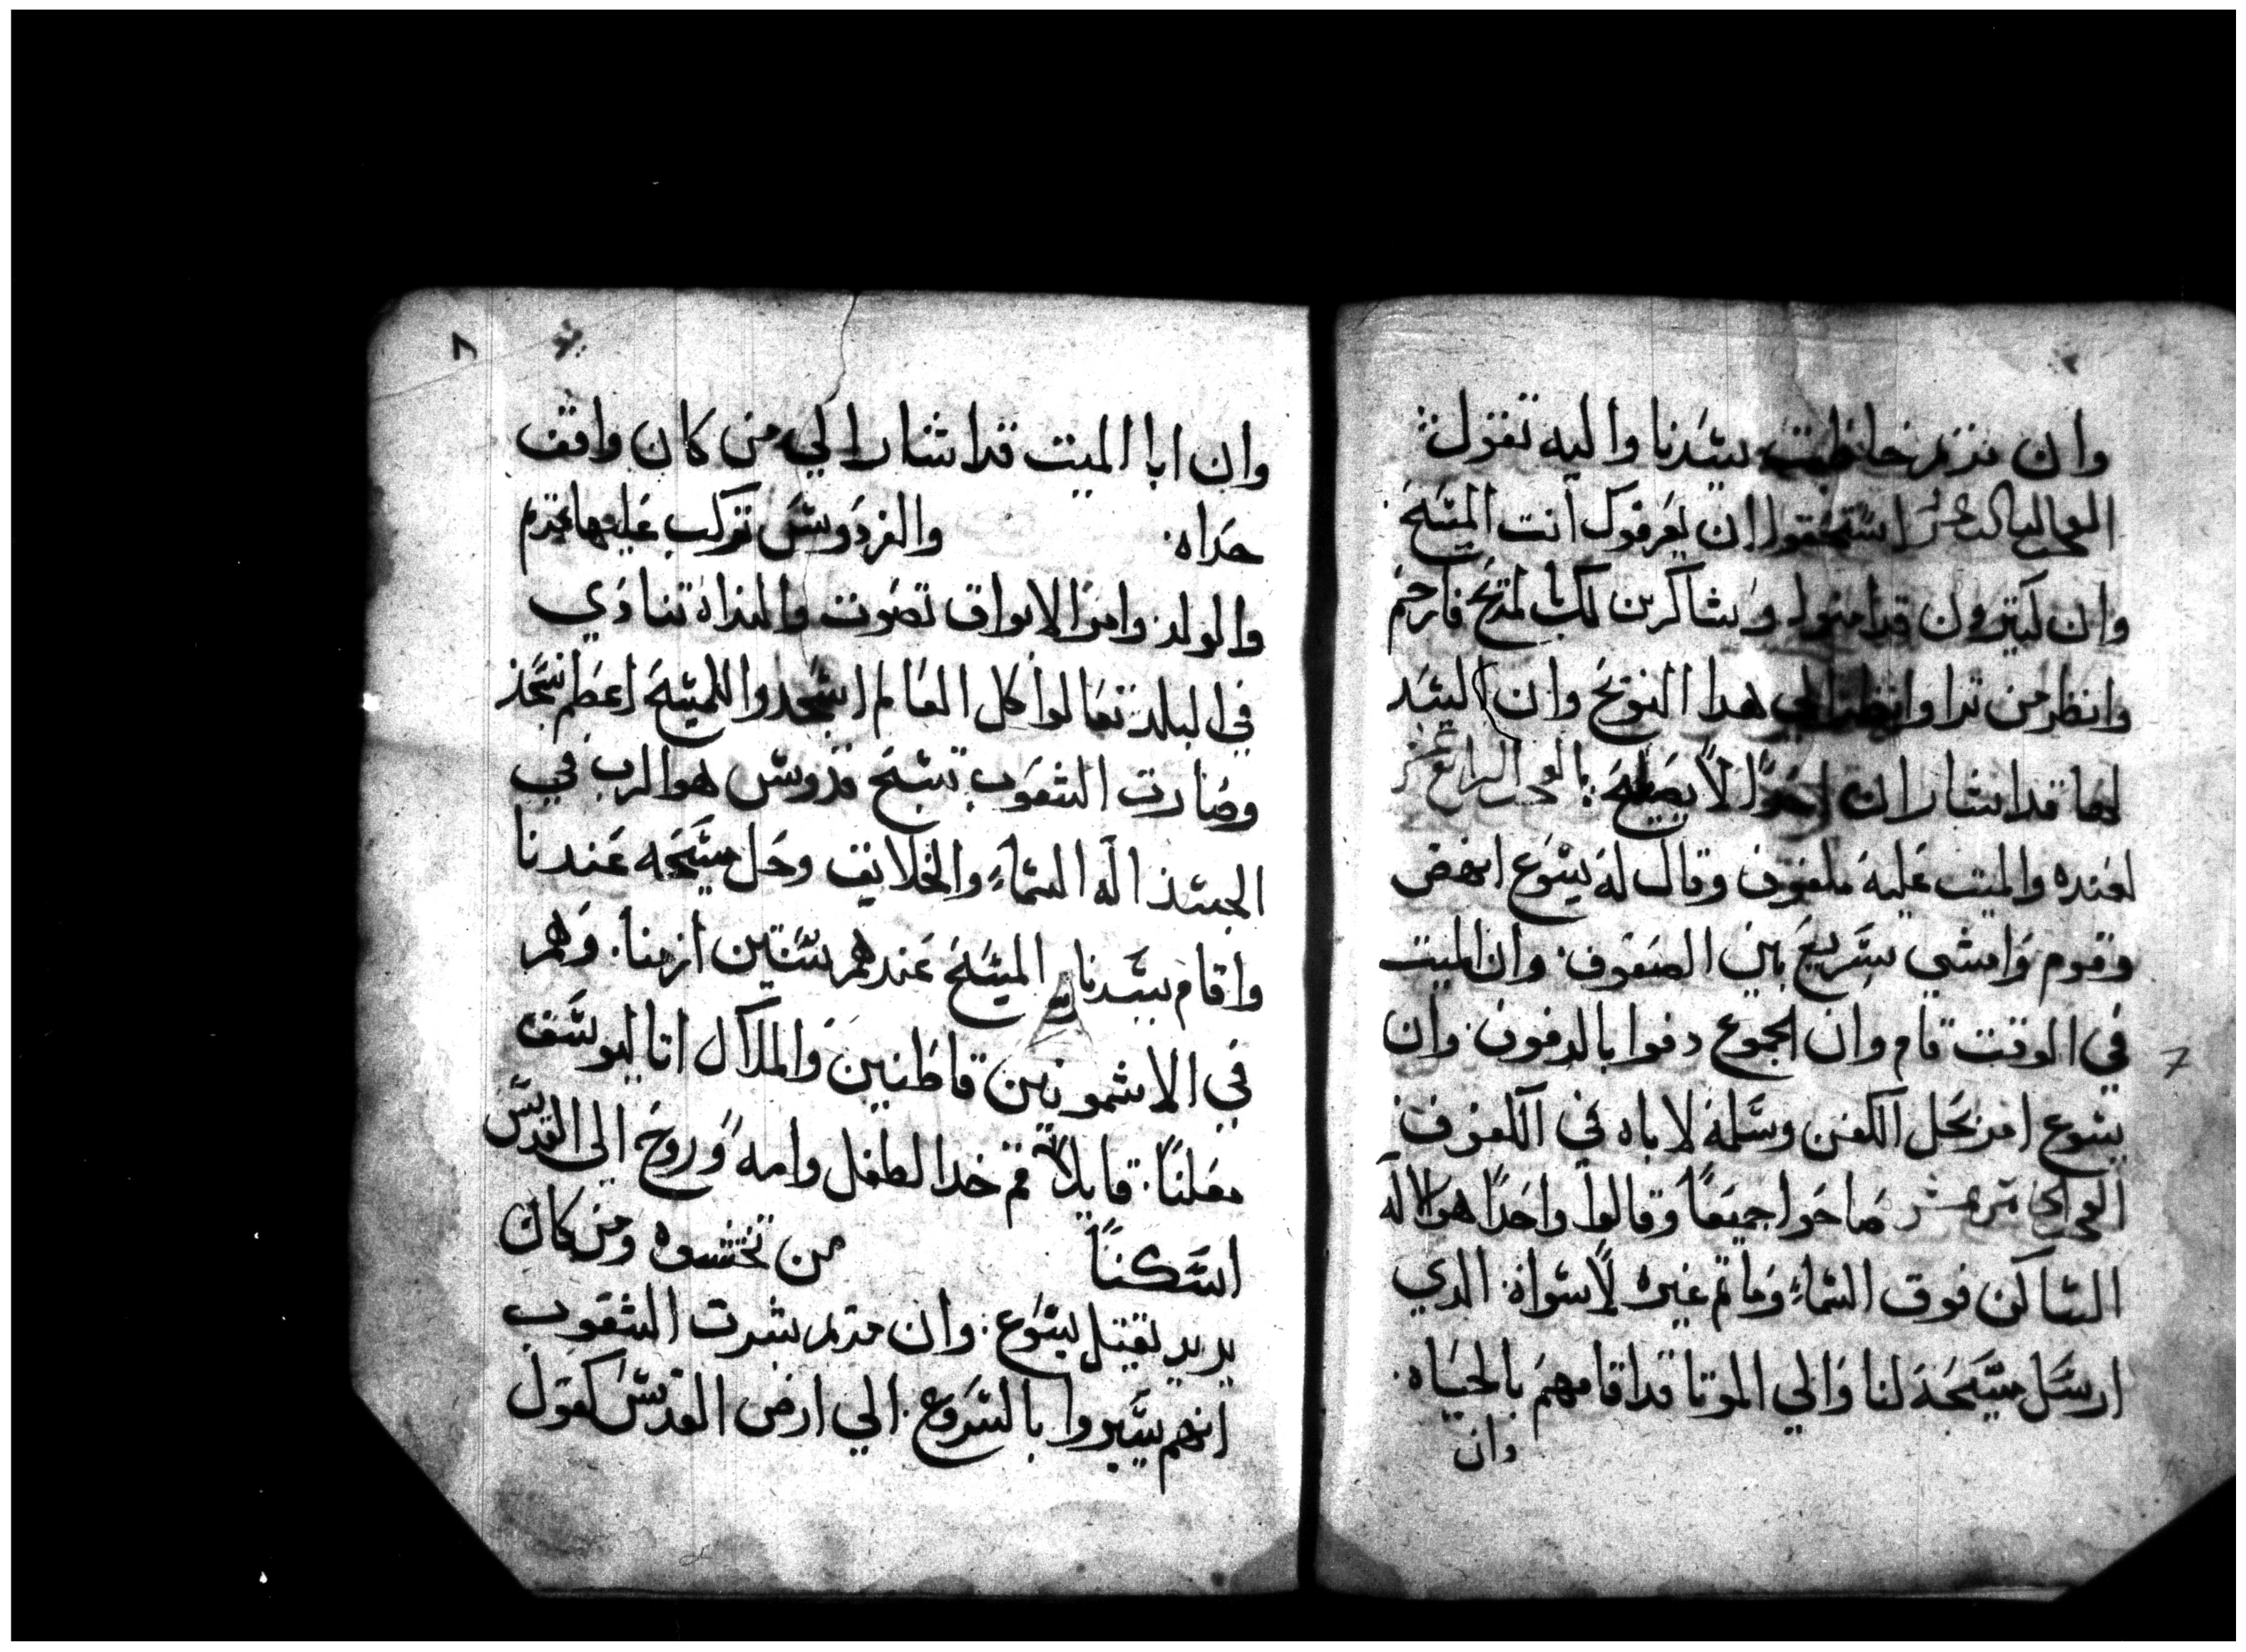 وان مريم خاطبت سيدنا واليه تقول
استحقوا ان يعرفوك انت المسيح
وان كتيرون قد امنوا وشاكرين لك بالمديح فارحم
وانظر من ترا وانظر الي هدا النويح وان السيد
لها قد اشار ان لا يصيح
لعنده والميت عليه ملفوف وقال له يسوع انهض
وقوم وامشي سريع بين الصفوف وان الميت
في الوقت قام وان الجموع دفوا بالدفوف وان
يسوع امر بحل الكفن وسلمه لاباه في الكفوف
صاحوا جميعا وقالوا واحدا هو الاله
الساكن فوق السماء وما تم غيره لا سواه الدي
ارسل مسيحه لنا والي الموتا قد اقامهم بالحياه
وان
7
٨
وان ابا الميت قد اشار الي من كان واقف
حداه والفردوس تركب عليها مريم
والولد وامر الابواق تصوت والمنداه تنادي
في البلد تعالوا كل العالم اسجدوا للمسيح اعظم سجد
وصارت الشعوب تسبح قدوس هو الرب في
الجسد اله السماء والخلايق وحل مسيحه عندنا
واقام سيدنا المسيح عندهم سنتين ازمنا وهم
في الاشمونين قاطنين والملاك اتا ليوسف
معلنا قايلا قم خد الطفل وامه وروح الي القدس
اسكنا من تخشوه ومن كان
يريد تقتل يسوع وان مريم بشرت الشعوب
انهم يسيروا بالسروع الي ارض القدس كقول